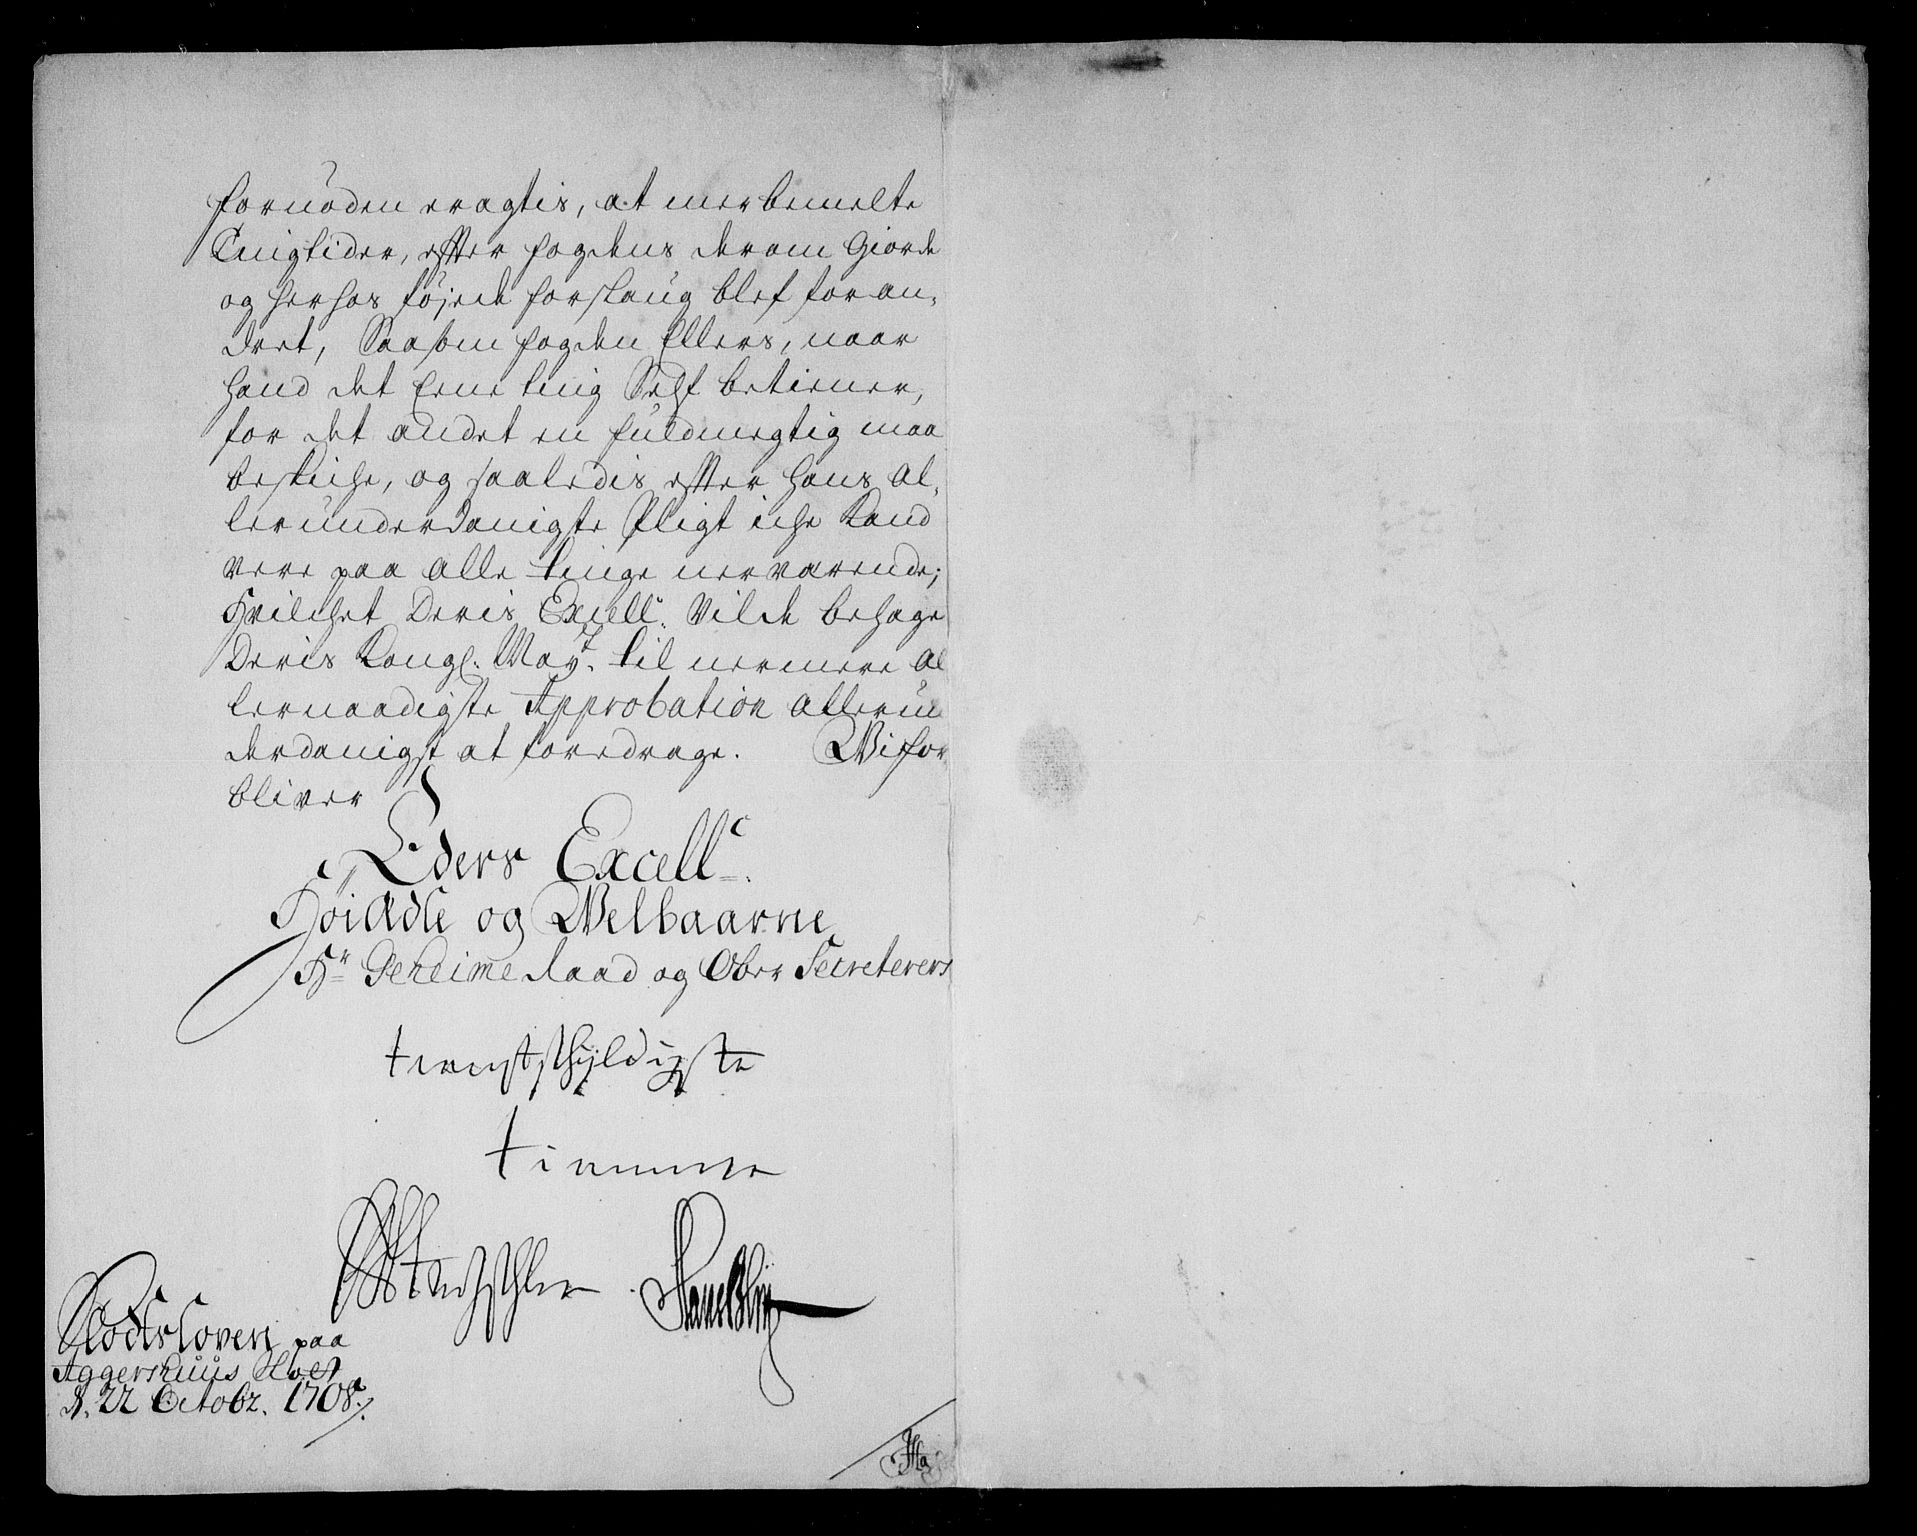 fornøden eragtis, at merbemelte
Tingtider, effter fogdens derom Giorde
og herhos føjede forslaug blef foran,
dret, Saasom fogden Ellers, naar
hand det Eene ting Self betiener,
for det andet en fuldmegtig maa
beskiche, og saaledis effter hans al,
lerunderdanigste Pligt iche Kand
vere paa alle tinge nerværende;
Hvilchet Deris Excell: Vilde behage
Deris Kongl. Mayt. til nermere al
lernaadigste Approbation allerun
derdanigst at foredrage. Wi for,
bliver
Eders Excell:
HøiÆdle og Welbaarne
Hr Geheime Raad og Ober Secreterers
tienstskyldigste
tiennere
Slodtsloven paa
Aggershuus
d. 22 Octobr. 1708.